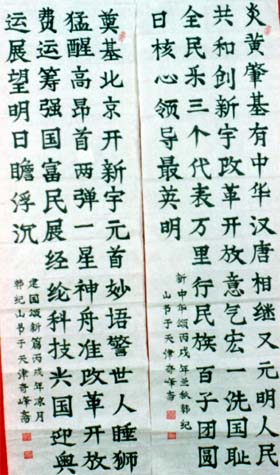 炎黄肇基有中华汉唐相继又元明人民
共和创新宇改革开放意气宏一洗国耻
全民乐三个代表万里行民族百子团圆
日核心领导最英明
新中华颂丙戌年秋韩纪
山书于天津奇峰斋
奠基北京开新宇元首妙语警世人睡狮
猛醒高昂首两弹一星神舟准改革开放
费运筹强国富民展经纶科技兴国迎奥
运展望明日瞻俘沉
建国颂新篇丙戌年凉月
韩纪山书于天津奇峰斋